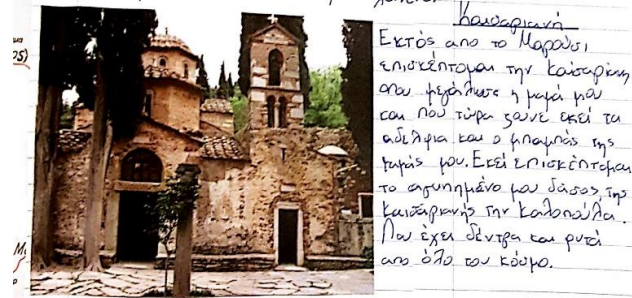 Καισαριανή
Εκτός απο το Μαρούσι
επισκέπτομαι την Καισαριανη
οπου μεγάλωσε η μαμά μου
και που τώρα ζουνε εκεί τα
αδέλφια και ο μπαμπάς της
μαμάς μου. Εκεί επισκέπτομαι
το αγαπημένο μου δάσος της
Καισαριανής την Καλοπούλα.
Που έχει δέντρα και φυτά
απο όλο τον κόσμο.